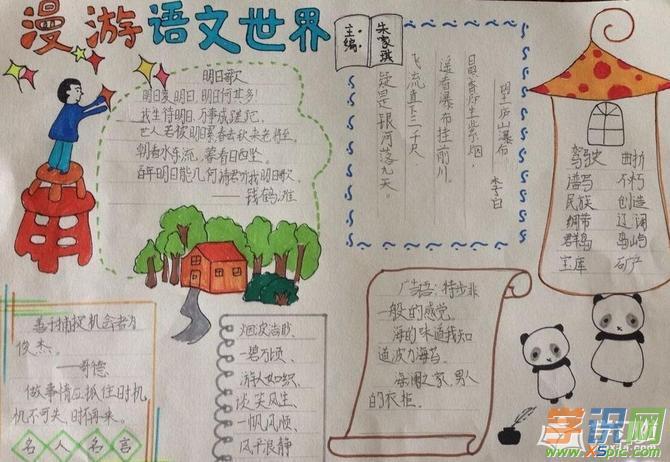 漫游语文世界
主编:
朱家琪
明日歌
明日复明日,明日何其多!
我生待明日,万事成蹉跎。
世人若被明日累,春去秋来老将至。
朝看水东流,暮看日西坠。
百年明日能几何?请君听我明日歌。
——钱鹤滩
望庐山瀑布
李白
日照香炉生紫烟,
遥看瀑布挂前川。
飞流直下三千尺,
疑是银河落九天。
驾驶 曲折
谱写 不朽
民族 创造
绸带 辽阔
群岛 岛屿
宝库 矿产
善于捕捉机会者为
俊杰。
——哥德
做事情应抓住时机,
机不可失,时不再来。
名人名言
烟波浩渺、
一碧万顷、
游人如织、
谈笑风生、
一帆风顺、
风平浪静
广告语:特步非
一般的感觉。
海的味道我知
道波力海苔。
海澜之家,男人
的衣柜。
学识网
www.xspic.com